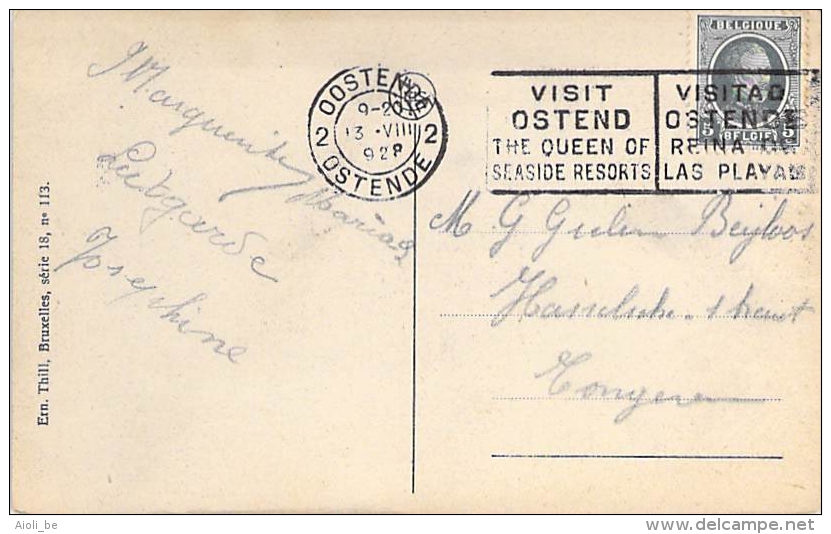 Marguerite Maria
Lutgarde
Josephine
Ern. Thill, Bruxelles, série 18, nº 113.
OOSTENDE
9-20
13 ·VIII
192
2 2
OSTENDE
VISIT
OSTEND
THE QUEEN OF
SEASIDE RESORTS
VISITAD
OSTENDE
REINA DE
LAS PLAYAS
BELGIQUE
5 5
BELGIE
M G Gielen Beijloos
Hasseltsche-straat
Tongeren
Aioli_be
www.delcampe.net